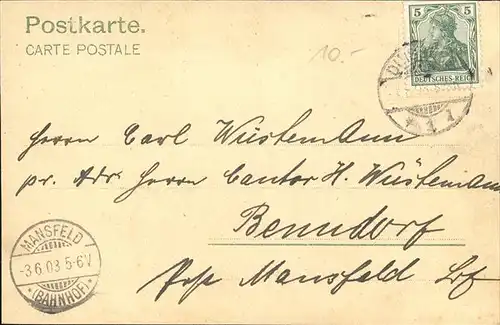 Postkarte.
CARTE POSTALE
10.-
5 5
DEUTSCHES REICH
Herrn Carl Wüstemann
pr. Adr. Herrn Cantor H. Wüstemann
Benndorf
Post Mansfeld
MANSFELD
-3.6.03 5-6V
*(BAHNHOF)*